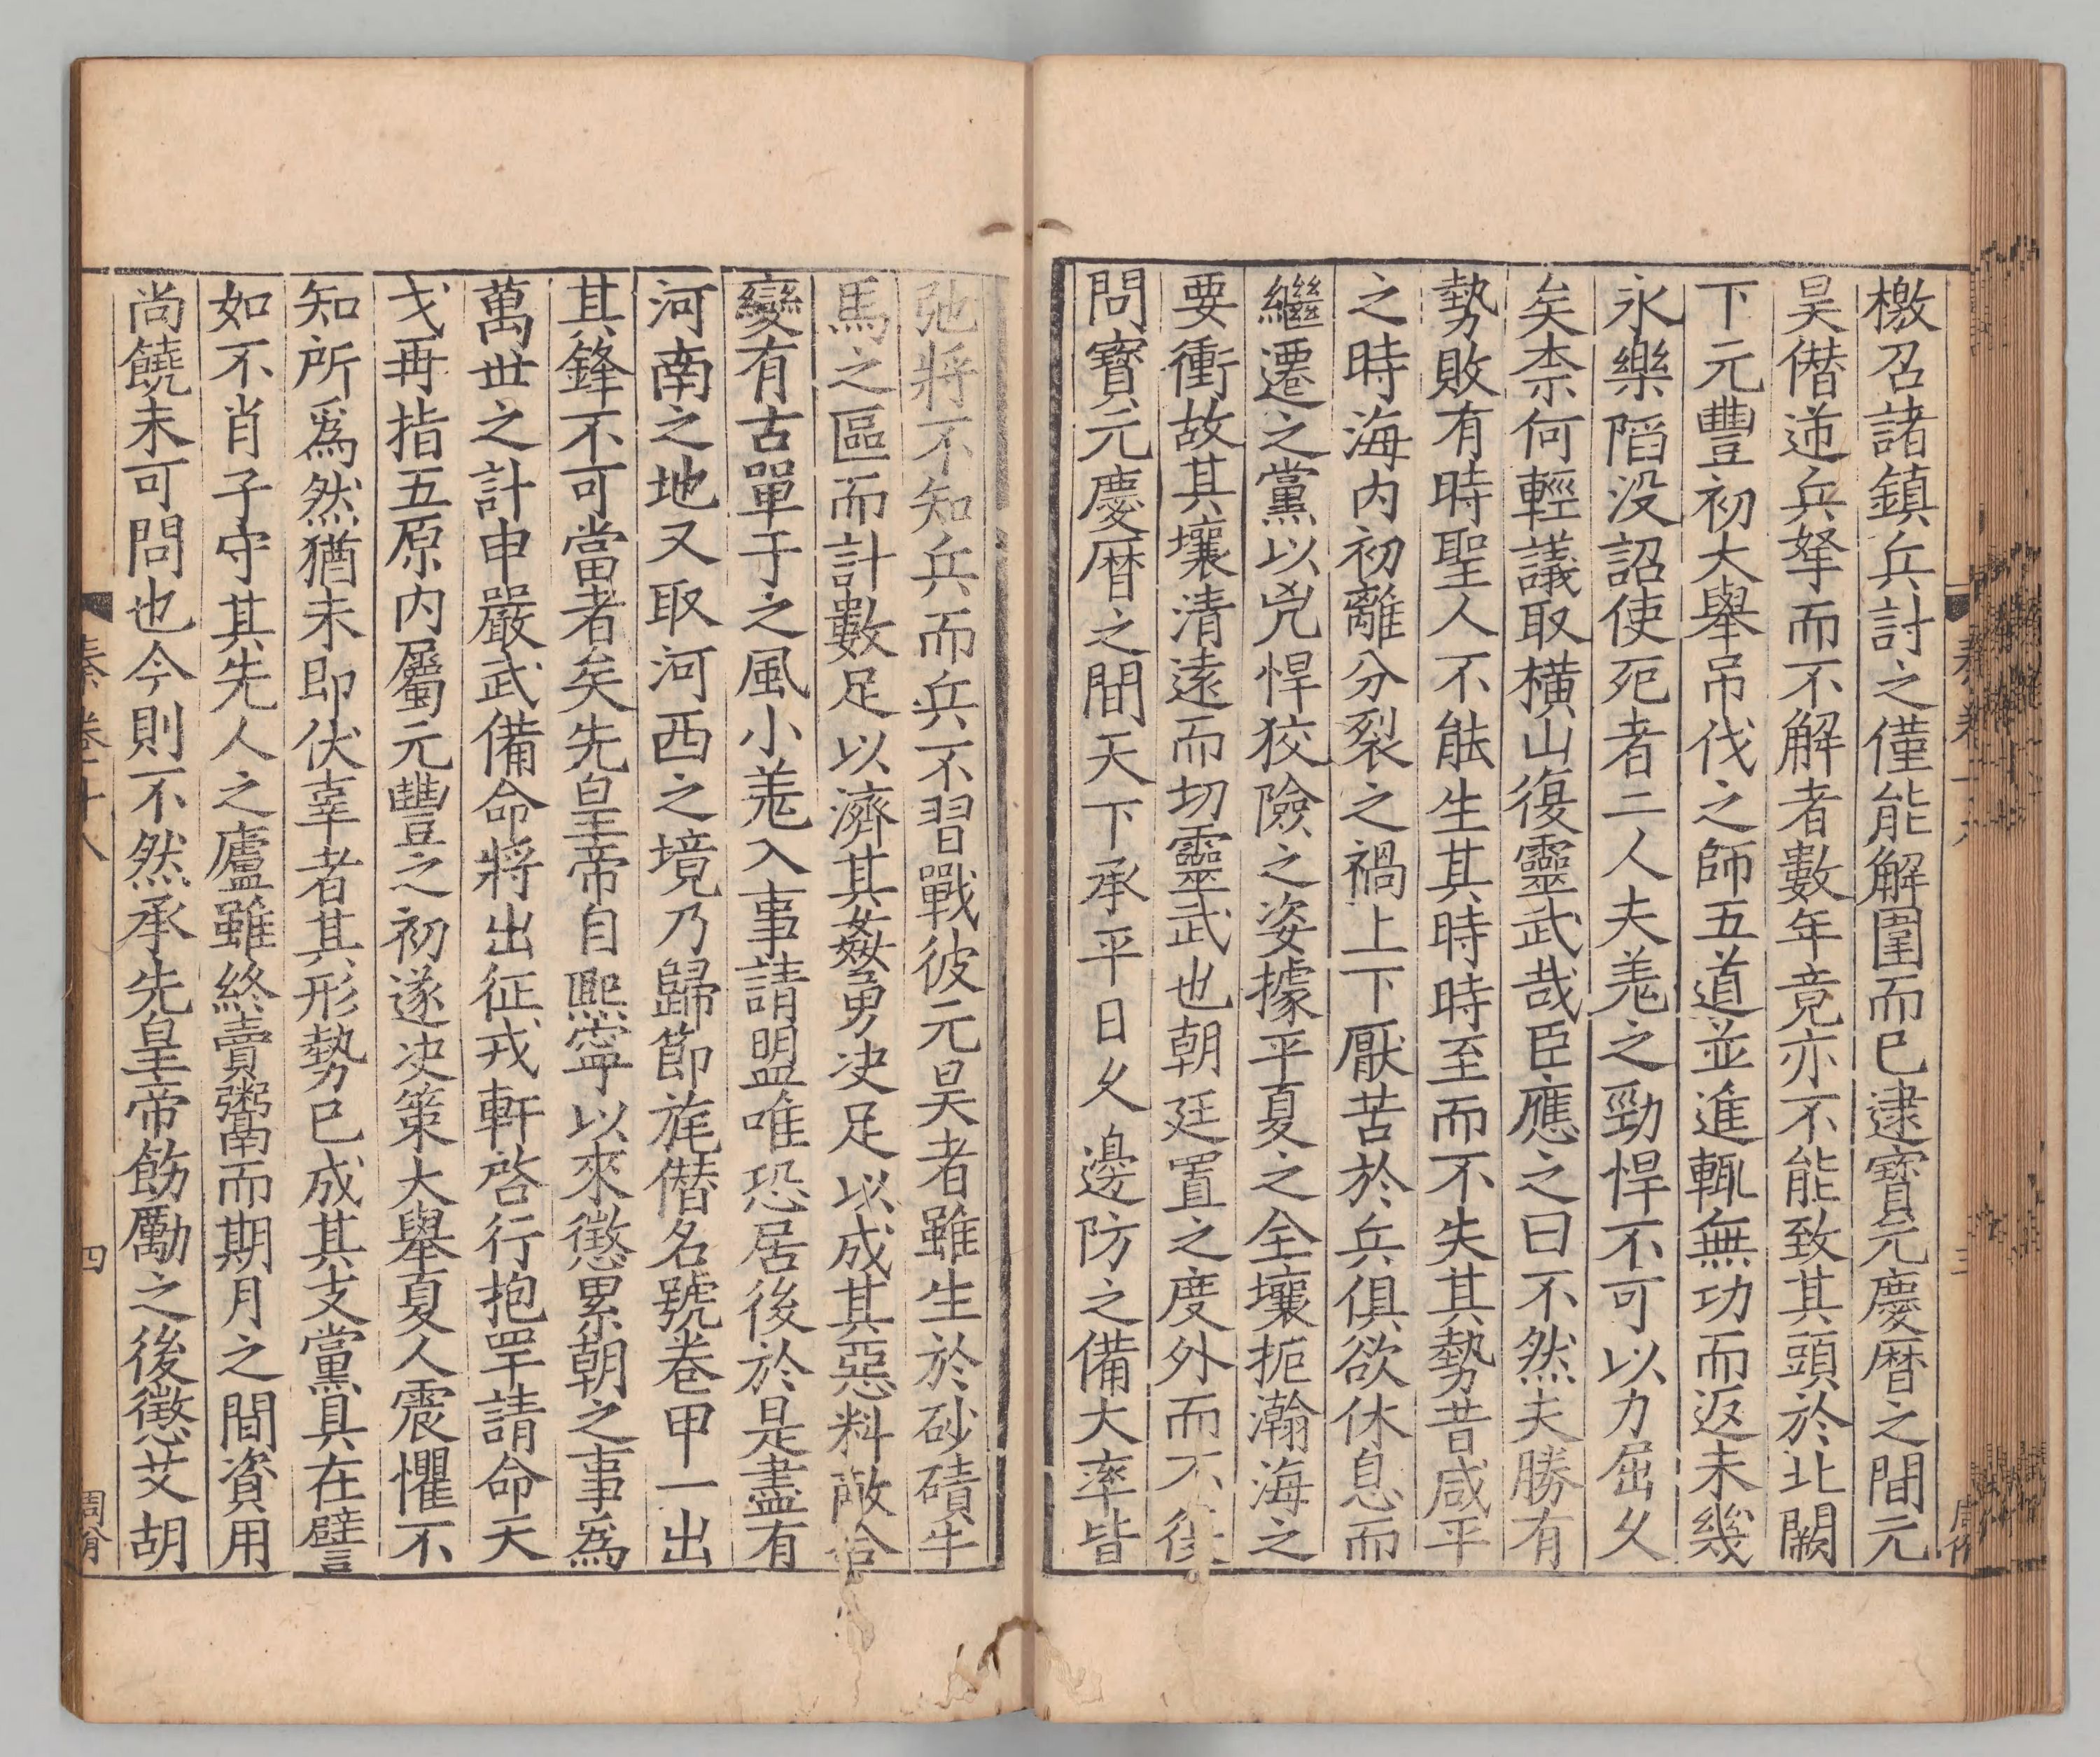 檄召諸鎮兵討之僅能解圍而已逮寶元慶曆之間元
昊僭逆兵拏而不解者數年竟亦不能致其頭於北闕
下元豐初大舉吊伐之師五道並進輒無功而返未幾
永樂陷没詔使死者二人夫羗之勁悍不可以力屈久
矣柰何輕議取橫山復靈武哉臣應之曰不然夫勝有
勢敗有時聖人不能生其時時至而不失其勢昔咸平
之時海内初離分裂之禍上下厭苦於兵俱欲休息而
繼遷之黨以兇悍狡險之姿據平夏之全壤扼瀚海之
要衝故其壤清遠而切靈武也朝廷置之度外而不復
問寶元慶曆之間天下承平日久邊防之備大率皆
弛將不知兵而兵不習戰彼元昊者雖生於砂磧牛
馬之區而計數足以濟其姦勇决足以成其惡料敵合
變有古單于之風小羗入事請盟唯恐居後於是盡有
河南之地又取河西之境乃歸節旄僭名號卷甲一出
其鋒不可當者矣先皇帝自熙寧以來懲累朝之事爲
萬世之計申嚴武備命將出征戎軒啓行抱罕請命天
戈再指五原内屬元豐之初遂决策大舉夏人震懼不
知所爲然猶未即伏辜者其形勢已成其支黨具在譬
如不肖子守其先人之廬雖終賣鬻而期月之間資用
尚饒未可問也今則不然承先皇帝飭勵之後懲艾胡
秦卷十八
四